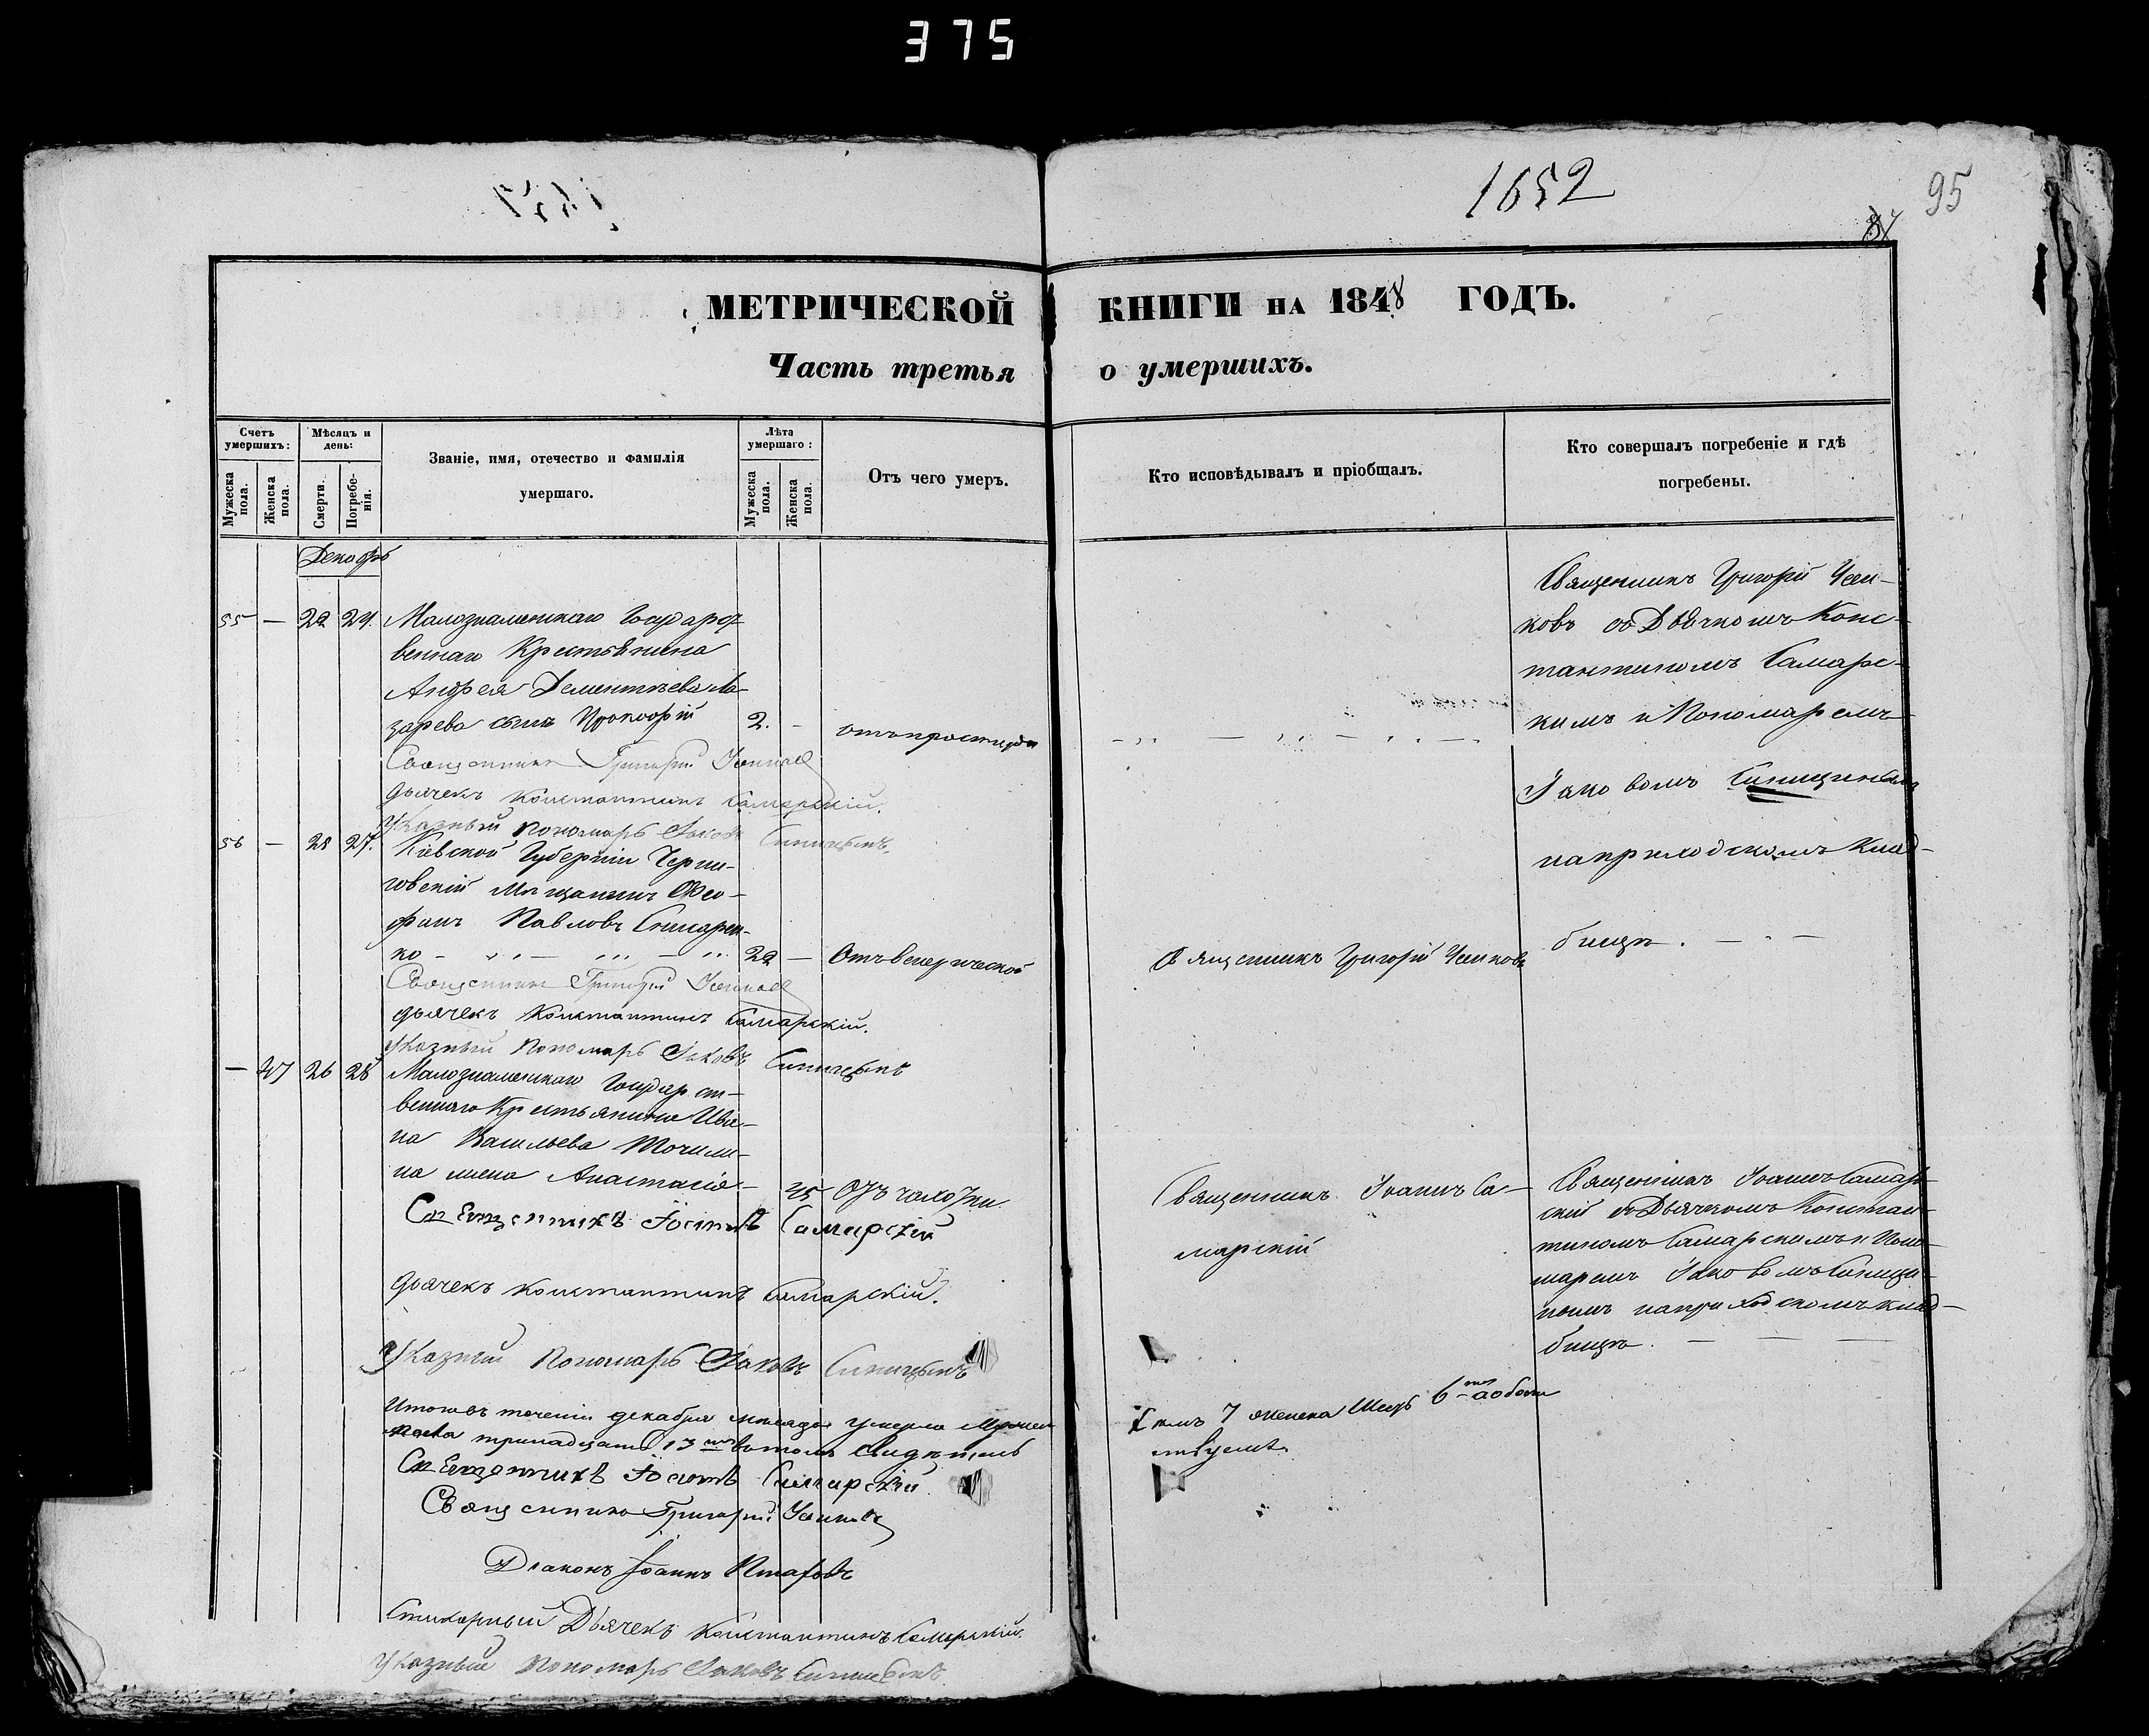 375
1652
95
МЕТРИЧЕСКОЙ КНИГИ НА 1848 ГОДЪ.
Часть третья о умершихъ.
Счетъ умершихъ:
Мужеска пола.
Женска пола.
Мѣсяцъ и день:
Смерти.
Погребенія.
Званіе, имя, отечество и фамилія
умершаго.
Лѣта умершаго:
Мужеска пола.
Женска пола.
Отъ чего умеръ.
Кто исповѣдывалъ и пріобщалъ.
Кто совершалъ погребеніе и гдѣ
погребены.
Декабрь
55 — 22 24. Малознаменскаго Государст
веннаго Крестьянина
Андрея Дементьева Ла-
зарева сынъ Прокофій 2. — отъ простуды
Священникъ Григорій
Дьячекъ Константинъ Самарскій.
Указный Пономарь Іаковъ Синицынъ.
Священникъ Григорій
ковъ съ Дьячкомъ Конс-
тантиномъ Самарс-
кимъ и Пономаремъ
Іаковомъ Синицинымъ
на приходскомъ клад-
бищѣ. —
56 — 25 27. Кіевской Губерніи Черни-
говскій Мѣщанинъ Фео-
фанъ Павловъ
ко — 22 — Отъ венерической
Священникъ Григорій
Священникъ Григорій
Дьячекъ Константинъ Самарскій.
Указный Пономарь Іаковъ Синицынъ
— 47 26 28 Малознаменскаго Государст-
веннаго Крестьянина Ива-
на Васильева Точили-
на жена Анастасія — 45 Отъ чахотки
Священникъ Іоаннъ Самарскій
Дьячекъ Константинъ Самарскій.
Указный Пономарь Іаковъ Синицынъ
Священникъ Іоаннъ Са-
марскій
Священникъ Іоаннъ Самар-
скій съ Дьячкомъ Констан-
тиномъ Самарскимъ и Поно-
маремъ Іаковомъ Синици-
нымъ на приходскомъ клад-
бищѣ. — — —
Итого въ теченіи декабря мѣсяца умерло Мужеск
пола тринадцать 13 въ томъ свидѣтель
ствуемъ
Священникъ Іоаннъ Самарскій.
Священникъ Григорій
Діаконъ Іоаннъ
Стихарный Дьячекъ Константинъ Самарскій.
Указный Пономарь Іаковъ Синицынъ.